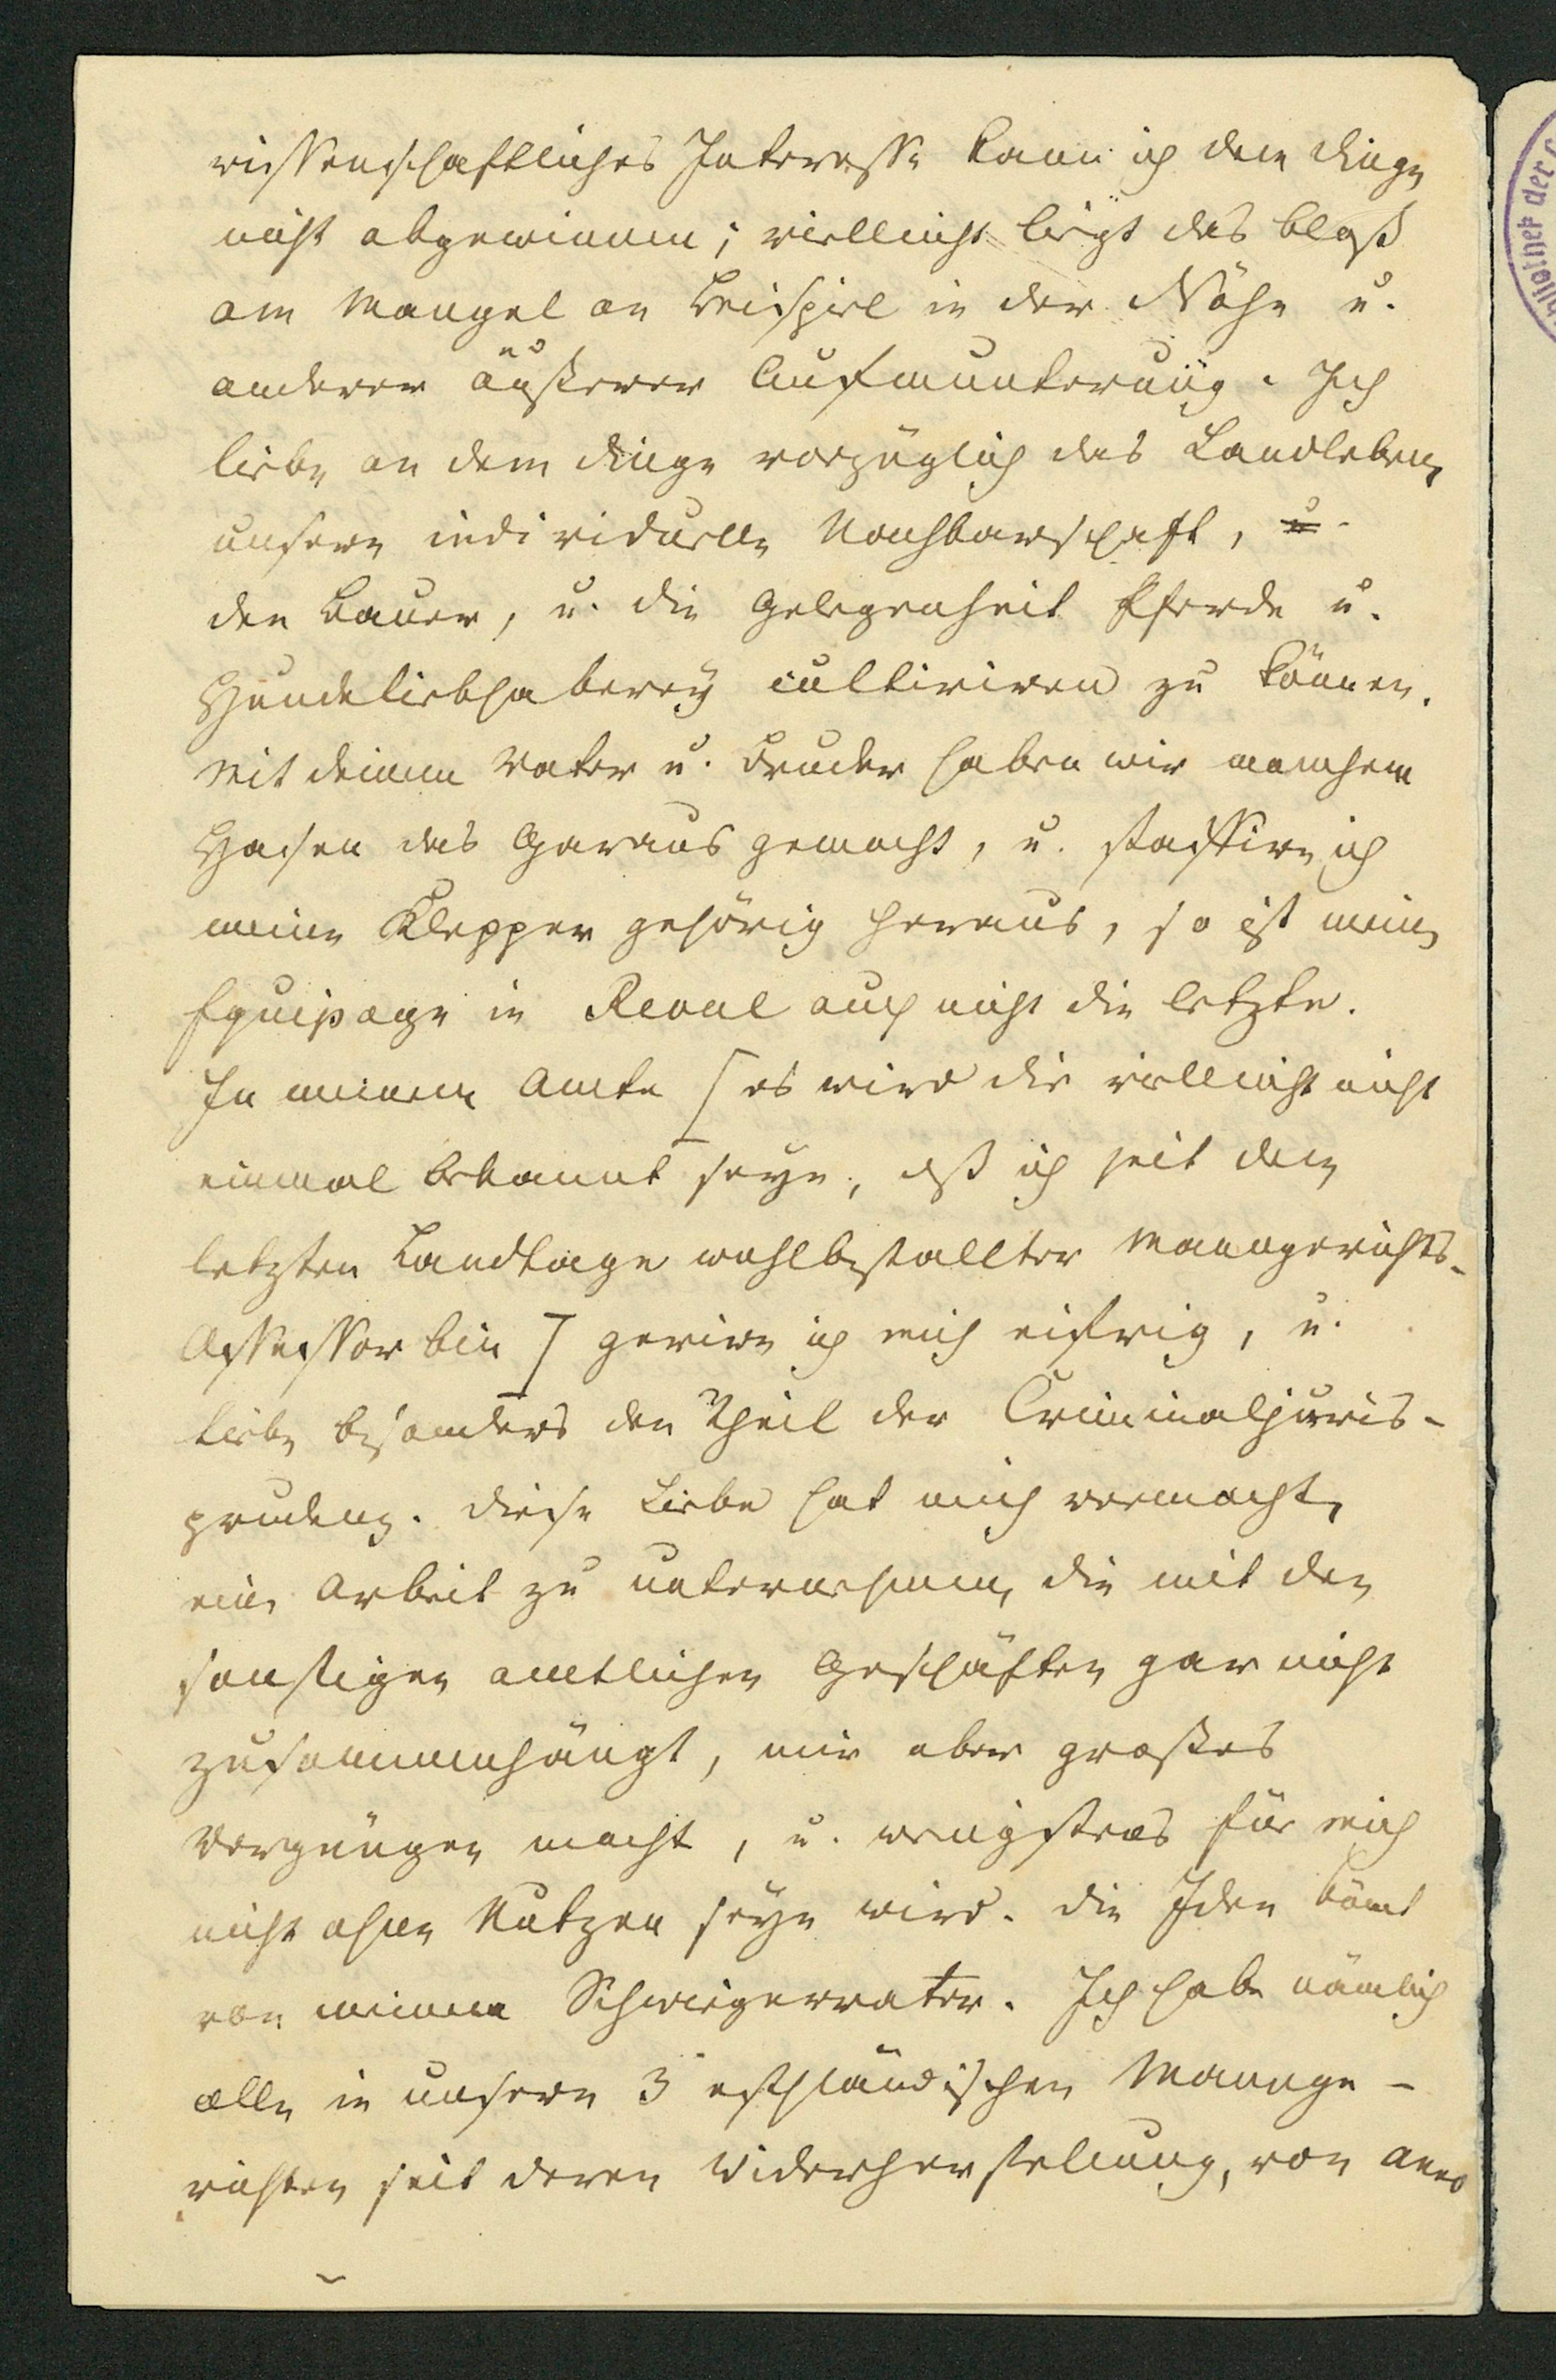 wissenschaftliches Interesse kann ich dem Dinge
nicht abgewinnen; vielleicht liegt das bloß
am Mangel an Beispiel in der Nähe u.
anderer äußerer Aufmunterung. Ich
liebe an dem Dinge vorzüglich das Landleben,
unsere individuelle Nachbarschaft, u.
den Bauer, u. die Gelegenheit Pferde u.
Hundeliebhaberey cultiviren zu können.
Mit deinem Vater u. Bruder haben wir manchem
Hasen das Garaus gemacht, u. staffire ich
meine Klepper gehörig heraus, so ist meine
Equipage in Reval auch nicht die letzte.
In meinem Amte [es wird dir vielleicht nicht
einmal bekannt seyn, daß ich seit dem
letzten Landtage wohlbestallter Manngerichts-
Assessor bin] gerire ich mich eifrig, u.
liebe besonders den Theil der Criminaljuris-
prudenz. Diese Liebe hat mich vermocht,
eine Arbeit zu unternehmen, die mit den
sonstigen amtlichen Geschäften gar nicht
zusammenhängt, mir aber großes
Vergnügen macht, u. wenigstens für mich
nicht ohne Nutzen seyn wird. Die Idee kömt
von meinem Schwiegervater. Ich habe nämlich
alle in unsern 3 esthländischen Mannge-
richten seit deren Widerherstellung, von anno